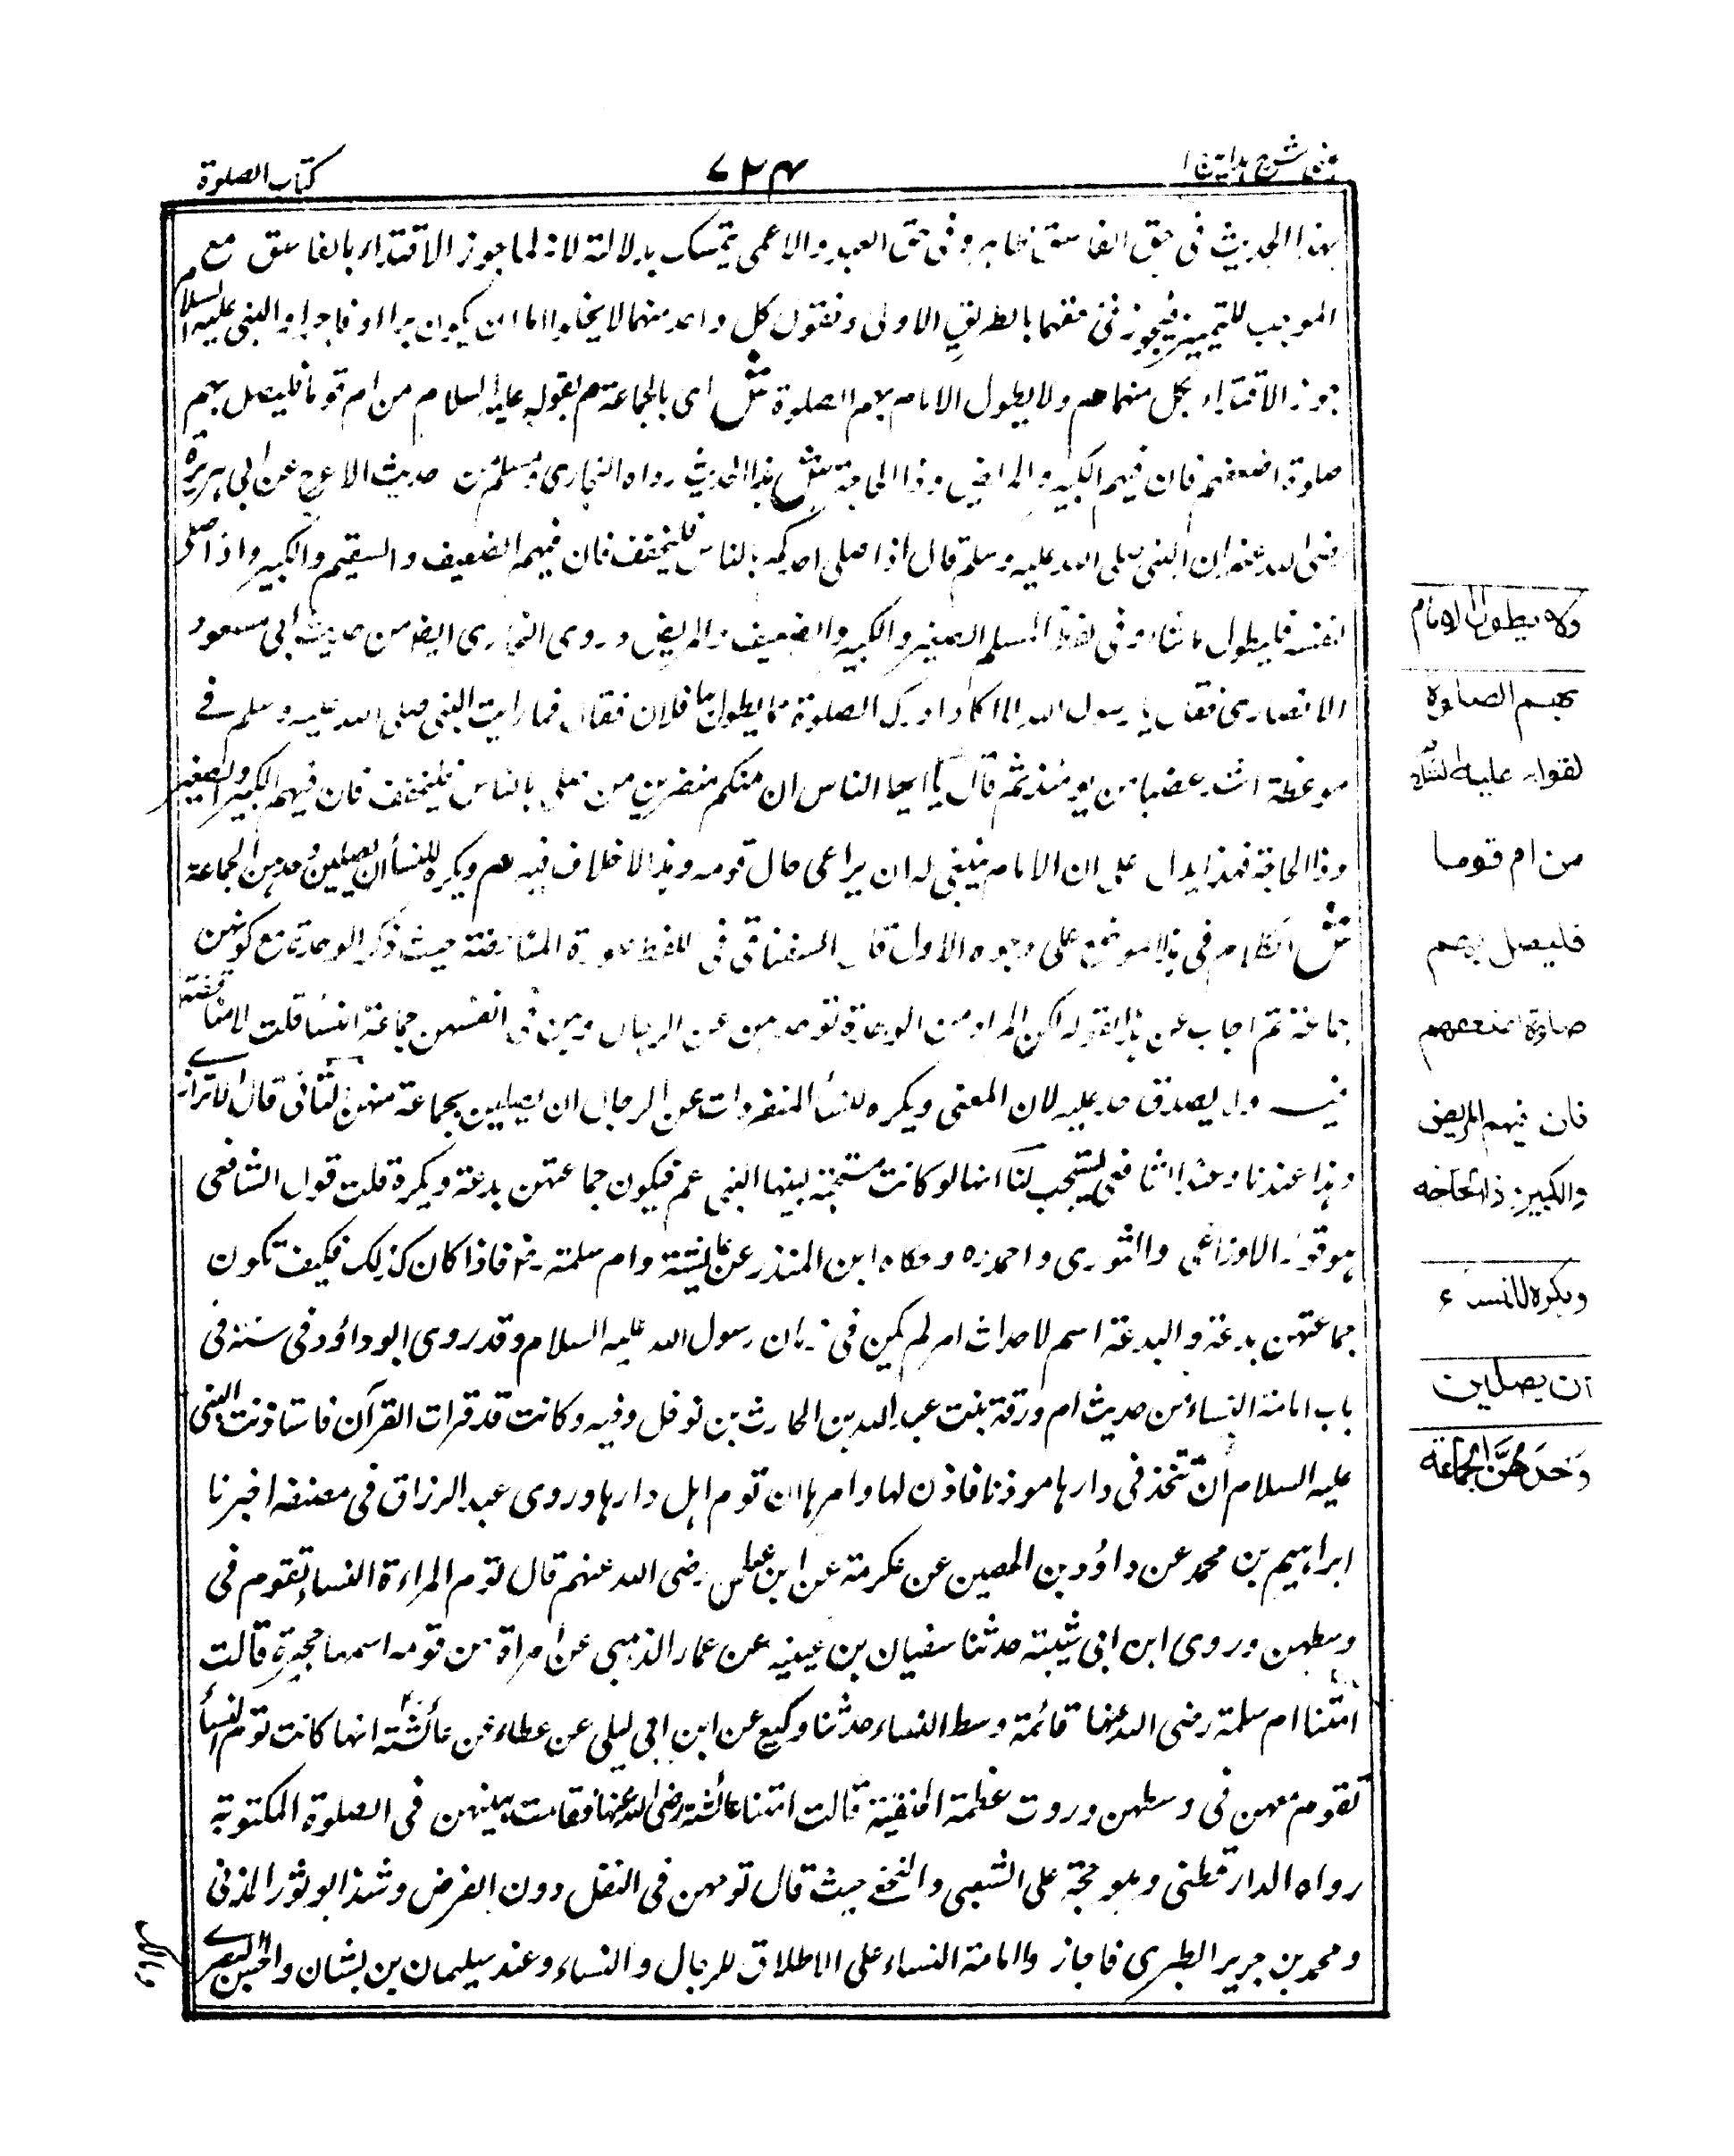 عینی شرح ہدایہ ج ۱
۷۲۴
كتاب الصلوة
بهذا الحديث فى حق الفاسق ظاهر وفى حق العبد والاعمى يتمسك بدلالته لانه لما جوز الاقتداء بالفاسق مع
الموجب للتمييز فيجوز فى حقهما بالطريق الاولى ونقول كل واحد منهما لا يخلوا اما ان يكون برا او فاجرا والنبى عليه السلام
جوز الاقتداء بكل منهما هم ولا يطول الامام بهم الصلوة ش اى بالجماعة هم لقوله عليه السلام من ام قوما فليصل بهم
صلوة اضعفهم فان فيهم الكبير والمريض وذا الحاجة ش هذا الحديث رواه البخارى ومسلم من حديث الاعرج عن ابى هريرة
رضى الله عنه ان النبى صلى الله عليه وسلم قال اذا صلى احدكم بالناس فليخفف فان فيهم الضعيف والسقيم والكبير واذا صلى
لنفسه فليطول ما شاء وفى لفظ المسلم الصغير والكبير والضعيف والمريض وروى البخارى ايضا من حديث ابى مسعود
الانصارى فقال يا رسول الله لا اكاد ادرك الصلوة مما يطول بنا فلان فقال فما رايت النبى صلى الله عليه وسلم فے
موعظة اشد غضبا من يومئذ ثم قال يا ايها الناس ان منكم منفرين من صلى بالناس فليخفف فان فيهم الكبير والصغير
وذا الحاجة فهذا يدل على ان الامام ينبغى له ان يراعى حال قومه وهذا لا خلاف فيه هم ويكره للنسأ ان يصلين وحدهن الجماعة
ش الكلام فى هذا الموضع على وجوه الاول قال السغناقى فى اللفظ صورة المناقضة حيث ذكر الوحدة مع كونهن
جماعة ثم اجاب عن هذا بقوله لكن المراد من الوحدة توحدهن عن الرجال وبين فى انفسهن جماعة النسأ قلت لا مناقضة
فيه ولا يصدق حد عليه لان المعنى ويكره للنسأ المنفردات عن الرجال ان يصلين بجماعة منهن الثانى قال الاترازے
وهذا عندنا وعند الشافعى يستحب لنا انها لو كانت مستحبة لبينها النبى عم فيكون جماعتهن بدعة ويكره قلت قول الشافعى
هو قول الاوزاعى والثورى واحمد ره وحكاه ابن المنذر عن عائشة وام سلمة رض فاذا كان كذلك فكيف تكون
جماعتهن بدعة والبدعة اسم لاحداث امر لم يكن فى زمان رسول الله عليه السلام وقد روى ابو داؤد فى سننه فى
باب امامة النساء من حديث ام ورقة بنت عبد الله بن الحارث بن نوفل وفيه وكانت قد قرات القرآن فاستاذنت النبى
عليه السلام ان تتخذ فى دارها موذنا فاذن لها وامرها ان توم اهل دارها وروى عبد الرزاق فى مصنفه اخبرنا
ابراهيم بن محمد عن داؤد بن الحصين عن عكرمة عن ابن عباس رضى الله عنهم قال توم المراءة النساء تقوم فى
وسطهن وروى ابن ابى شيبة حدثنا سفيان بن عيينه عن عمار الذهبى عن امراة من قومه اسمها حجيرة قالت
امتنا ام سلمة رضى الله عنها قائمة وسط النساء حدثنا وكيع عن ابن ابى ليلى عن عطاء عن عائشة انها كانت توم النسأ
تقوم معهن فى وسطهن وروت عظمة الحنفية قالت امتنا عائشة رضى الله عنها فقامت بينهن فى الصلوة المكتوبة
رواه الدارقطنى وهو حجة على الشعبى والنخعے حيث قال تومهن فى النفل دون الفرض وشذ ابو ثور المزنى
ومحمد بن جرير الطبرى فاجاز وا امامة النساء على الاطلاق للرجال والنساء وعند سليمان بن بشان والحسن البصرے
ولا يطول الامام
بهم الصلوة
لقوله عليه السلام
من ام قوما
فليصل بهم
صلوة اضعفهم
فان فيهم المريض
والكبير وذا الحاجة
ويكره للنساء
ان يصلين
وحدهن الجماعة